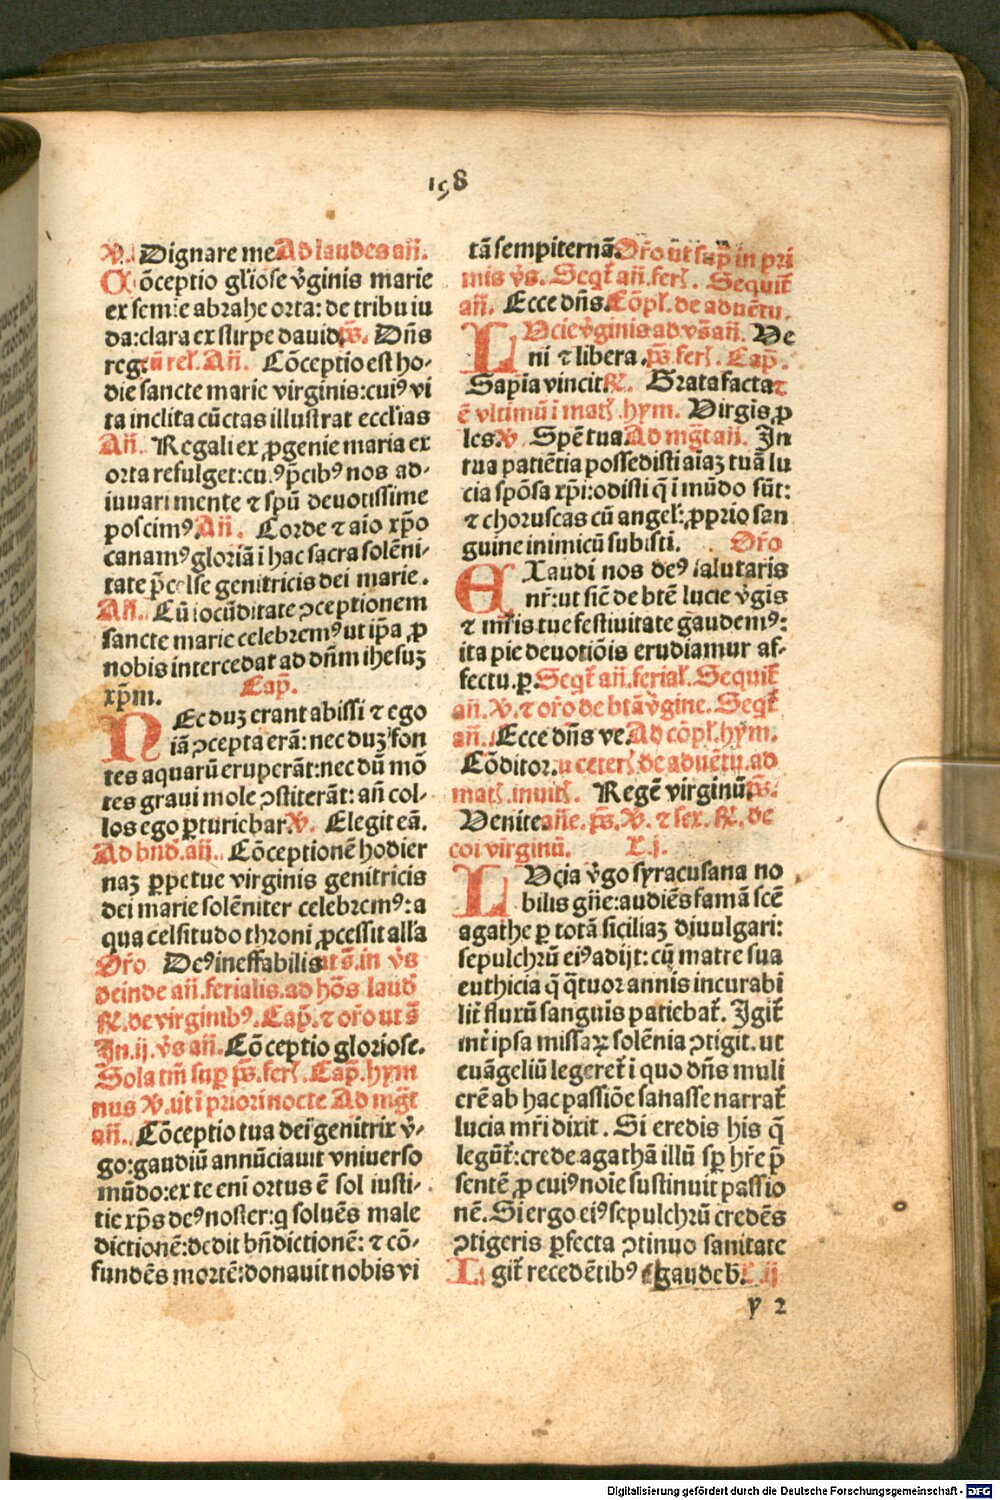 198
℣. Dignare me Ad laudes añ.
Cõceptio gl'iose v̾ginis marie
ex semie abrahe orta: de tribu iu
da: clara ex stirpe dauid. ps. Dñs
reg. cũ rel'. Añ. Cõceptio est ho-
die sancte marie virginis: cuiꝰ vi
ta inclita cũctas illustrat eccl'ias
Añ. Regali ex ꝓgenie maria ex
orta refulget: cuiꝰ p̃cibꝰ nos ad-
iuuari mente ⁊ spũ deuotissime
poscimꝰ. Añ. Corde ⁊ aĩo xp̃o
canamꝰ gloriã ĩ hac sacra solẽni-
tate p̃celse genitricis dei marie.
Añ. Cũ iocũditate ꝯceptionem
sancte marie celebremꝰ ut ip̃a ꝓ
nobis intercedat ad dñm ihesuꝫ
xp̃m. Cap̃.
NEc duꝫ erant abissi ⁊ ego
iã ꝯcepta erã: nec duꝫ fon
tes aquarũ eruperãt: nec dũ mõ
tes graui mole ꝯstiterãt: añ col-
los ego ꝑturiebar. ℣. Elegit eã.
Ad bñd. añ. Cõceptionẽ hodier
naꝫ ꝑpetue virginis genitricis
dei marie solẽniter celebremꝰ: a
qua celsitudo throni ꝓcessit all'a
Or̃o Deꝰ ineffabilis ut s̃. in v̾s
deinde añ. ferialis. ad hõs laud
℟. de virginibꝰ. Cap̃. ⁊ or̃o ut s̃
In .ij. v̾s añ. Cõceptio gloriose.
Sola tm̃ suꝑ ps̃. ferl'. Cap̃. hym
nus ℣. ut ĩ priori nocte Ad mgt̃
añ. Cõceptio tua dei genitrix v̾-
go: gaudiũ annũciauit vniuerso
mũdo: ex te eni ortus ẽ sol iusti-
tie xp̃s deꝰ noster: q̃ soluẽs male
dictionẽ: dedit bñdictionẽ: ⁊ cõ-
fundẽs mortẽ: donauit nobis vi
tã sempiternã. Or̃o ut sup̃ in pri
mis v̾s. Seqt̃ añ. ferl'. Sequit̃
añ. Ecce dñs. Cõpl'. de aduẽtu.
LUcie v̾ginis ad vs̃ añ. Ve
ni ⁊ libera. ps̃ ferl'. Cap̃.
Sap̃ia vincit. ℟. Grata facta ⁊
ẽ vltimũ ĩ mat'. hym. Virgis ꝓ
les. ℣ Spẽ tua Ad mgt̃ añ. In
tua patiẽtia possedisti aĩaꝫ tuã lu
cia spõsa xp̃i: odisti q̃ ĩ mũdo sũt:
⁊ choruscas cũ angel': ꝓprio san
guine inimicũ subisti. Or̃o
EXaudi nos deꝰ salutaris
nr̃: ut sic̃ de btẽ lucie v̾gis
⁊ mr̃is tue festiuitate gaudemꝰ:
ita pie deuotiõis erudiamur af-
fectu. ꝑ. Seqt̃ añ. ferial'. Sequit̃
añ. ℣. ⁊ or̃o de btã v̾gine. Seqt̃
añ. Ecce dñs ve. Ad cõpl'. hym.
Cõditor. ut ceter' de aduẽtu. ad
mat'. inuit'. Regẽ virginũ. ps̃.
Venite. añe. ps̃. ℣. ⁊ sex. ℟. de
cõi virginũ. L. j.
LUcia v̾go syracusana no
bilis gñe: audiẽs famã scẽ
agathe ꝑ totã siciliaꝫ diuulgari:
sepulchrũ eiꝰ adijt: cũ matre sua
euthicia q̃ q̃tuor annis incurabi
lit̾ fluxũ sanguis patiebat̃. Igit̃
mr̃i ipsa missaꝝ solẽnia ꝯtigit. ut
euãgeliũ legeret̃ ĩ quo dñs muli
erẽ ab hac passiõe sanasse narrat̃
lucia mr̃i dixit. Si credis his q̃
legũt̃: crede agathã illũ sp̃ hr̃e p̃
sentẽ ꝓ cuiꝰ noĩe sustinuit passio
nẽ. Si ergo eiꝰ sepulchrũ credẽs
ꝯtigeris ꝑfecta ꝯtinuo sanitate
Igit̃ recedẽtibꝰ gaudeb. L. ij
y 2
Digitalisierung gefördert durch die Deutsche Forschungsgemeinschaft - DFG